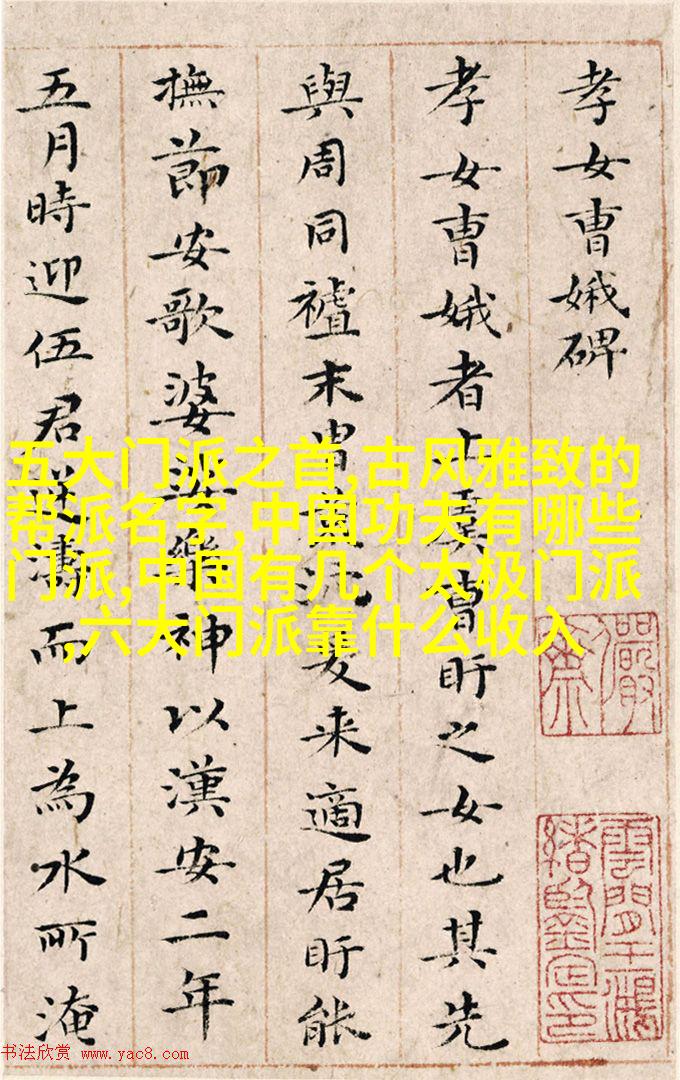 孝女曹娥碑
孝女曹娥者上虞曹盱之女也其先
與周同末胄荒沉爰来適居盱能
撫節安歌婆娑樂神以漢安二年
五月時迎伍君逆濤而上為水所淹
五大门派之首,古风雅致的
帮派名字,中国功夫有哪些
门派,中国有几个太极门派
,六大门派靠什么收入
儼齋
雲間王鴻
緒鑒定印
书法欣赏 www.yac8.com